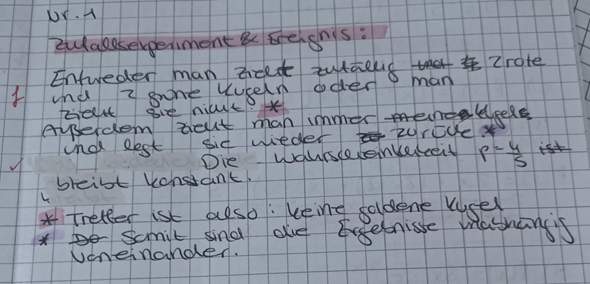 Nr. 1
Zufallsexperiment & Ereignis:
Entweder man zieht zufällig 2 rote
f und 2 grüne Kugeln oder man
zieht sie nicht. *
Außerdem zieht man immer eine Kugel
und legt sie wieder zurück *
✓ Die Wahrscheinlichkeit p = 4/5 ist
bleibt konstant.
* Treffer ist also: keine goldene Kugel
* Somit sind die Ergebnisse unabhängig
voneinander.